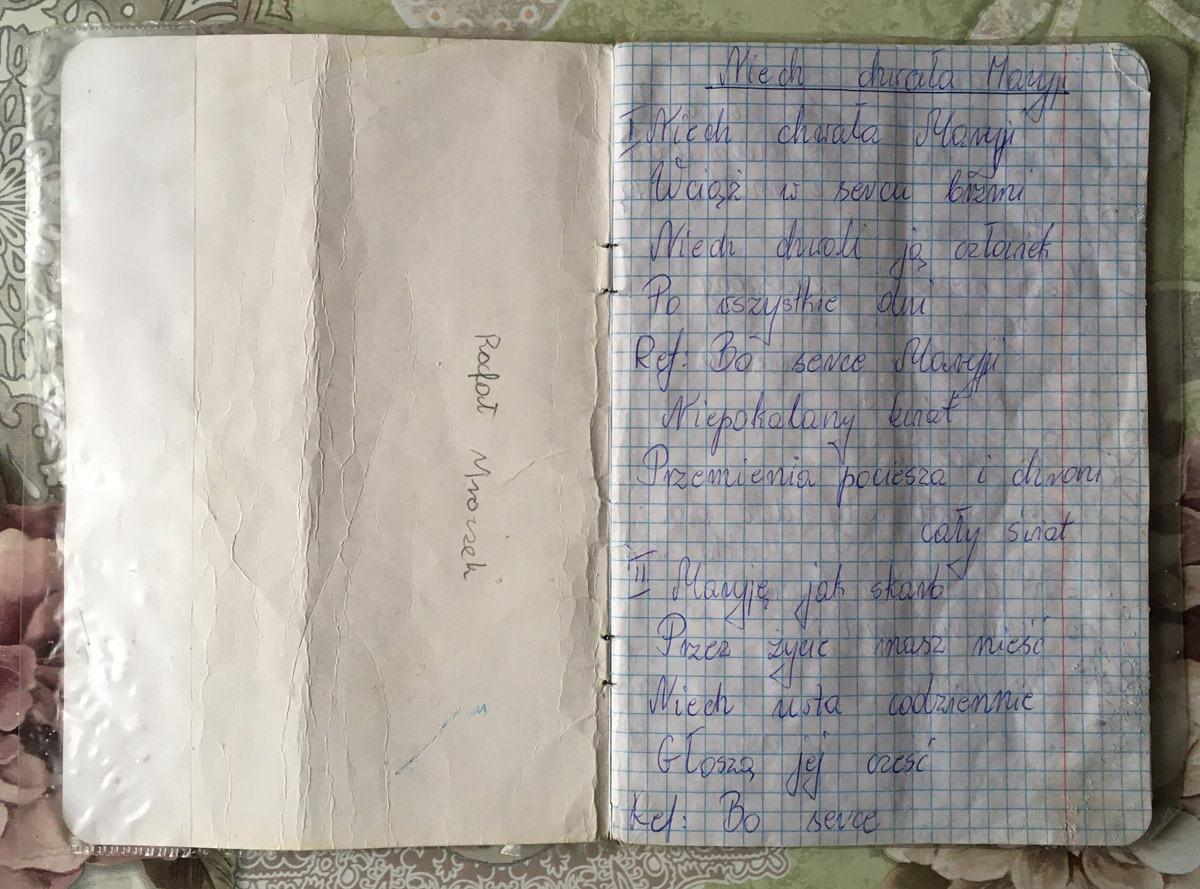 Rafał Mrozek
Niech chwała Maryji
I Niech chwała Maryji
Wciąż w sercu brzmi
Niech chwali ją człowiek
Po wszystkie dni
Ref: Bo serce Maryji
Niepokalany kwiat
Przemienia pociesza i chroni
cały świat
II Maryję jak skarb
Przez życie masz nieść
Niech usta codziennie
Głoszą jej cześć
Ref: Bo serce